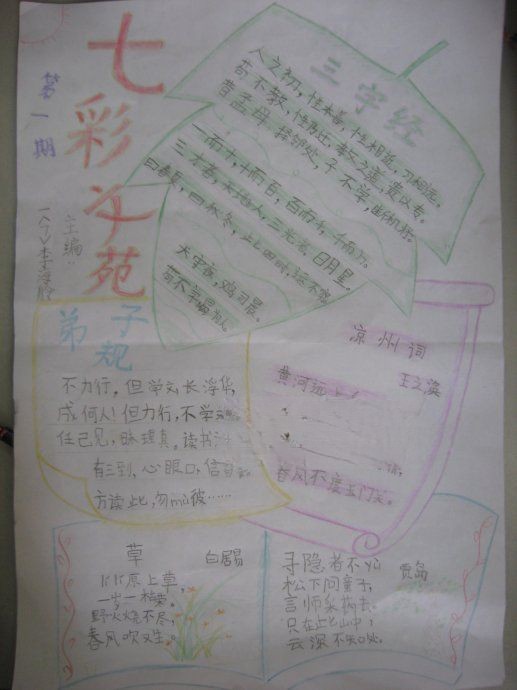 七彩文苑
第一期
主编:
三字经
人之初,性本善,性相近,习相远。
苟不教,性乃迁,教之道,贵以专。
昔孟母,择邻处,子不学,断机杼。
一而十,十而百,百而千,千而万。
三才者,天地人,三光者,日月星。
曰春夏,曰秋冬,此四时,运不穷。
犬守夜,鸡司晨。
苟不学,曷为人。
弟子规
不力行,但学文,长浮华,
成何人!但力行,不学
任己见,昧理真。读书
有三到、心眼口,信
方读此,勿mù彼……
凉州词
王之涣
黄河远上
春风不度玉门关。
草
白居易
原上草,
一岁一枯荣。
野火烧不尽,
春风吹又生。
寻隐者不yù
贾岛
松下问童子,
言师采药去。
只在此山中,
云深不知处。